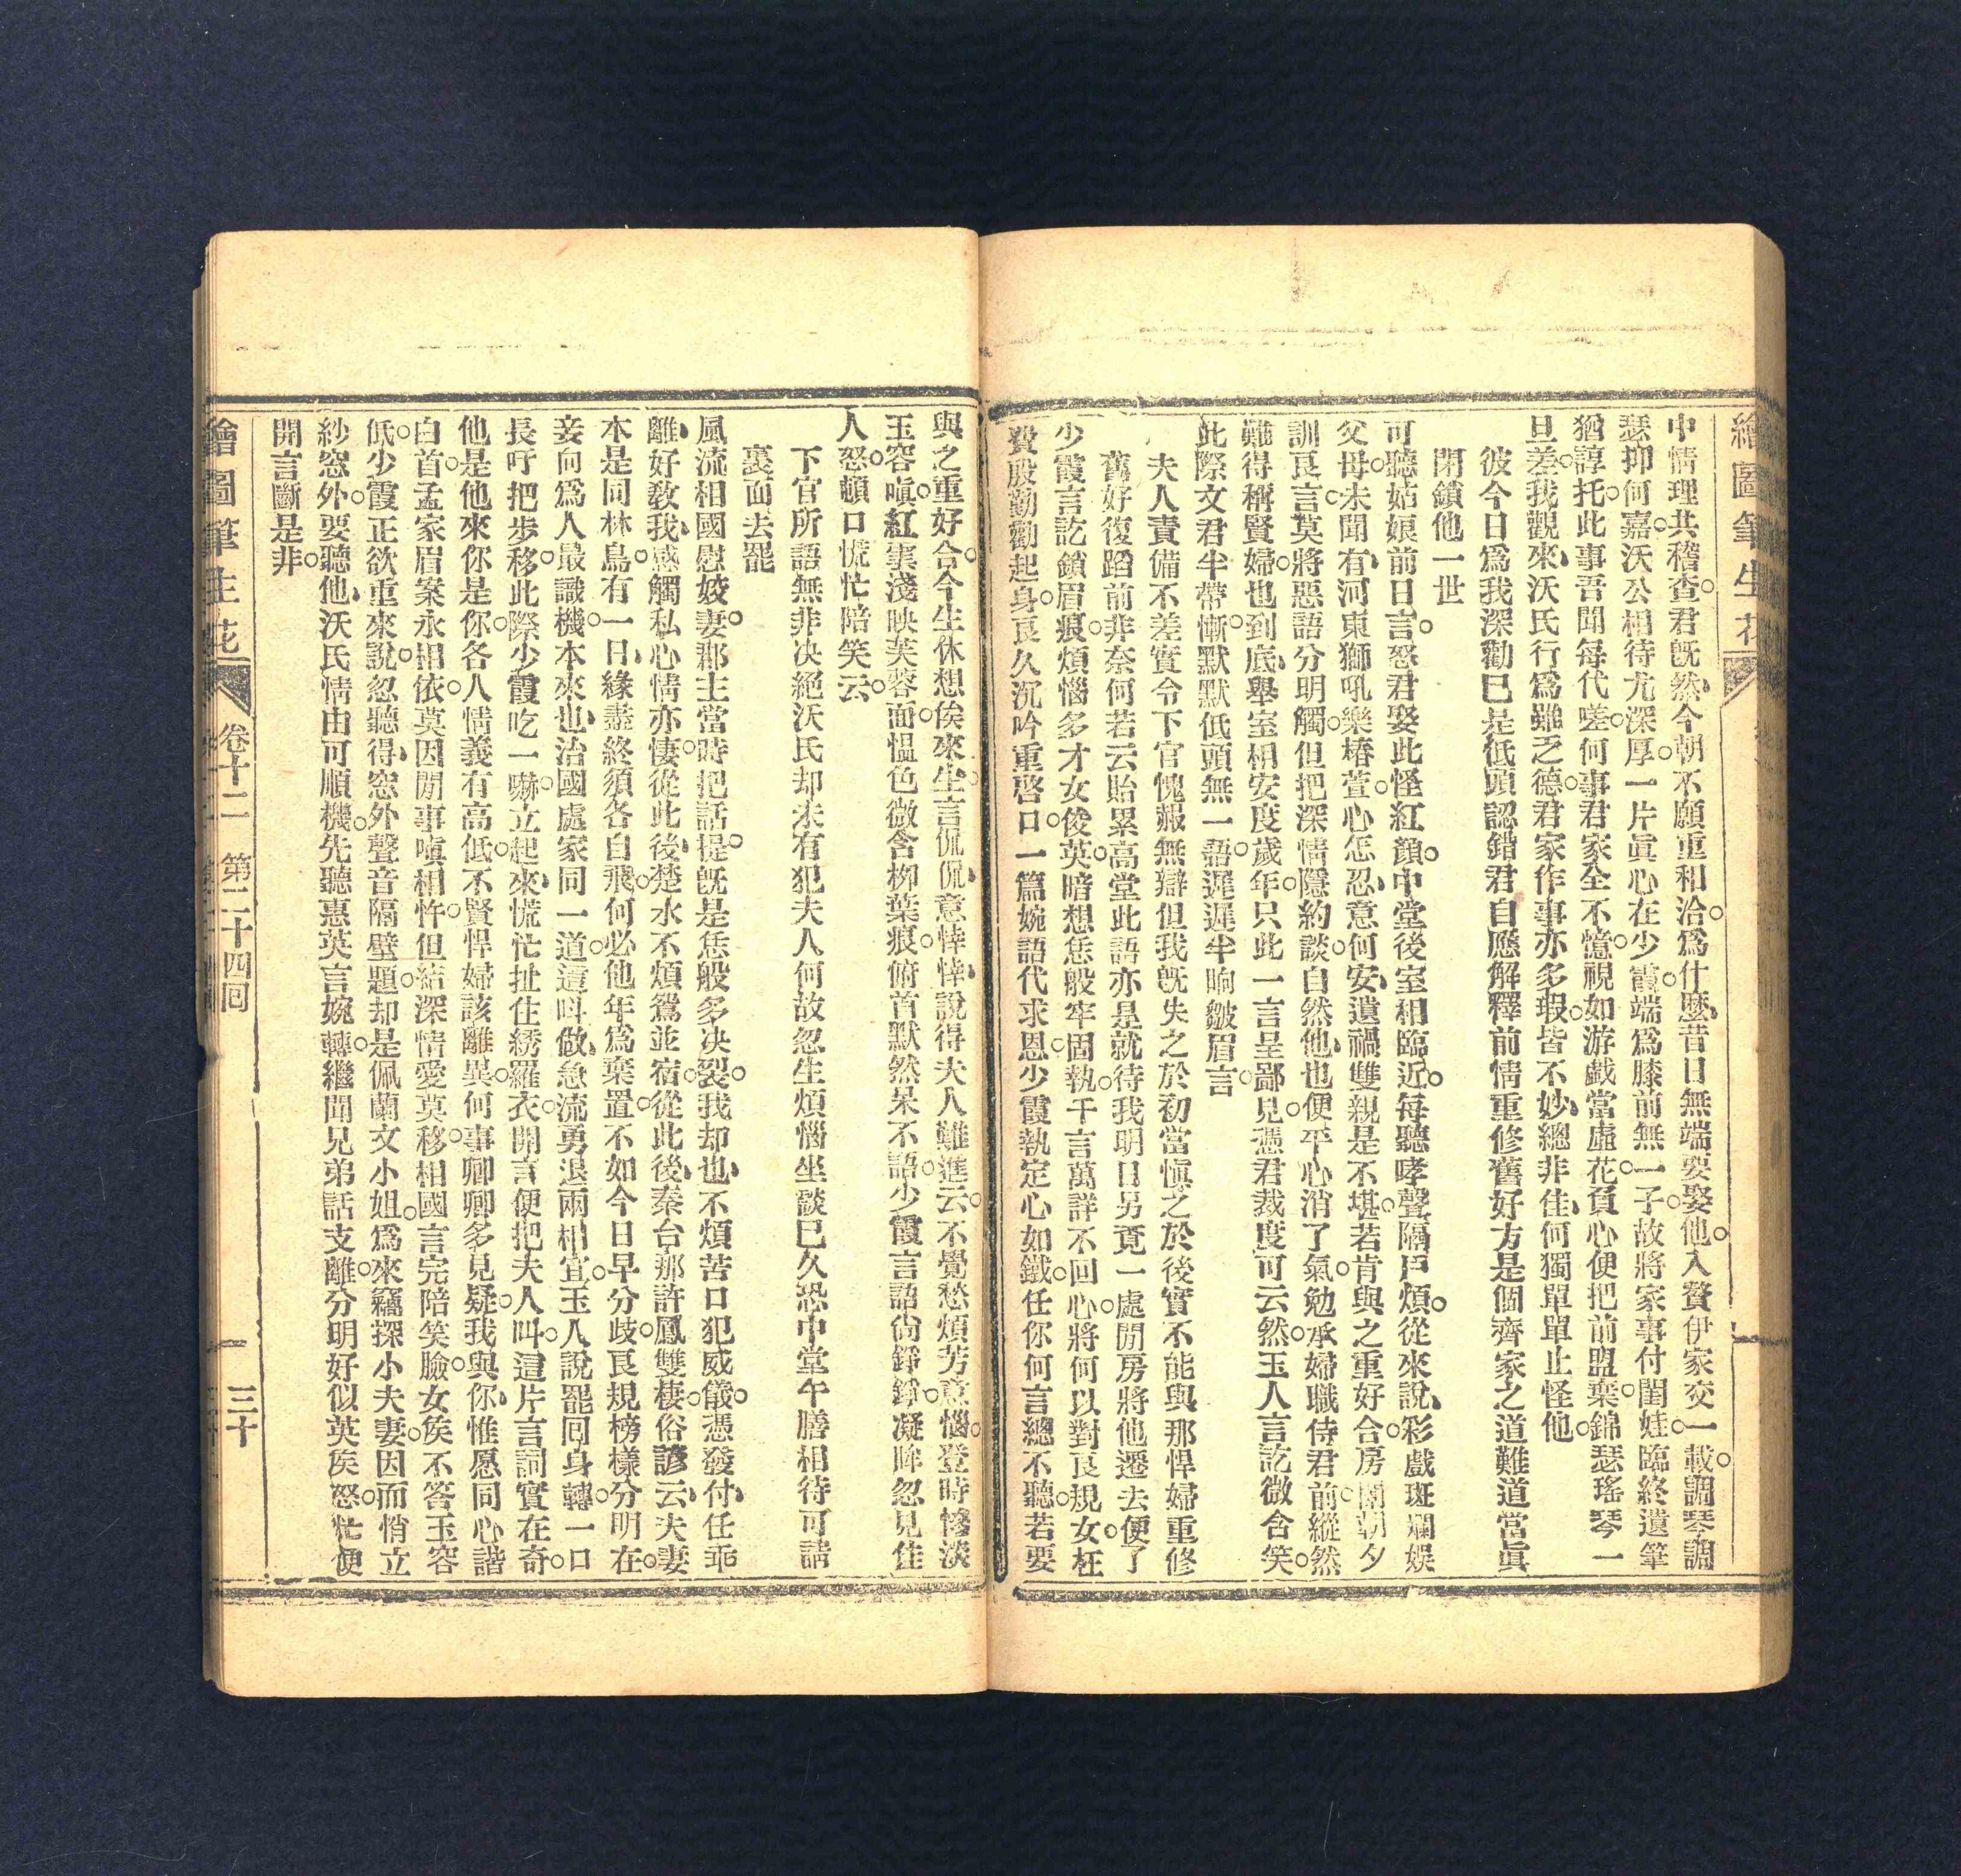 繪圖筆生花
中情理共稽查君既然今朝不願重和洽爲什麽昔日無端要娶他入贅伊家交一載調琴調
瑟抑何嘉沃公相待尤深厚一片眞心在少霞端爲膝前無一子故將家事付閨娃臨終遺筆
猶諄托此事吾聞每代嗟何事君家全不憶視如游戲當虛花負心便把前盟棄錦瑟瑤琴一
旦差我觀來沃氏行爲雖乏德君家作事亦多瑕皆不妙總非佳何獨單單止怪他
彼今日爲我深勸已是低頭認錯君自應解釋前情重修舊好方是個齊家之道難道當眞
閉鎖他一世
可聽姑娘前日言怒君娶此怪紅顏中堂後室相臨近每聽哮聲隔戶煩從來說彩戲斑斕娛
父母未聞有河東獅吼樂椿萱心怎忍意何安遺禍雙親是不堪若肯與之重好合房闈朝夕
訓良言莫將惡語分明觸但把深情隱約談自然他也便平心消了氣勉承婦職侍君前縱然
難得稱賢婦也到底舉室相安度歲年只此一言呈鄙見憑君裁度可云然玉人言訖微含笑
此際文君半帶慚默默低頭無一語遲遲半晌皺眉言
夫人責備不差實令下官愧赧無辯但我旣失之於初當愼之於後實不能與那悍婦重修
舊好復蹈前非奈何若云貽累高堂此語亦是就待我明日另覓一處閒房將他遷去便了
少霞言訖鎖眉痕煩惱多才女俊英暗想恁般牢固執千言萬詳不回心將何以對良規女枉
費殷勤勸起身良久沉吟重啓口一篇婉語代求恩少霞執定心如鐵任你何言總不聽若要
與之重好合今生休想俟來生言侃侃意悻悻說得夫人難進云不覺愁煩芳意惱登時慘淡
玉容嗔紅事淺映芙蓉面慍色微含柳葉痕俯首默然呆不語少霞言語尙錚錚凝眸忽見佳
人怒頓口慌忙陪笑云
下官所語無非决絕沃氏却未有犯夫人何故忽生煩惱坐談已久恐中堂午膳相待可請
裏面去罷
風流相國慰姣妻郡主當時把話提旣是恁般多决裂我却也不煩苦口犯威儀憑發付任乖
離好敎我感觸私心情亦悽從此後楚水不煩鴛並宿從此後秦台那許鳳雙棲俗諺云夫妻
本是同林鳥有一日緣盡終須各自飛何必他年爲棄置不如今日早分歧良規榜樣分明在
妾向爲人最識機本來也治國處家同一道這呌做急流勇退兩相宜玉人說罷回身轉一口
長吁把步移此際少霞吃一嚇立起來慌忙扯住綉羅衣開言便把夫人呌這片言詞實在奇
他是他來你是你各人情義有高低不賢悍婦該離異何事卿卿多見疑我與你惟愿同心諧
白首孟家眉案永相依莫因閒事嗔相忤但結深情愛莫移相國言完陪笑臉女侯不答玉容
低少霞正欲重來說忽聽得窓外聲音隔壁題却是佩蘭文小姐爲來竊探小夫妻因而悄立
紗窓外要聽他沃氏情由可順機先聽惠英言婉轉繼聞兄弟話支離分明好似英侯怒忙便
開言斷是非
繪圖筆生花
卷十二
第二十四回
三十